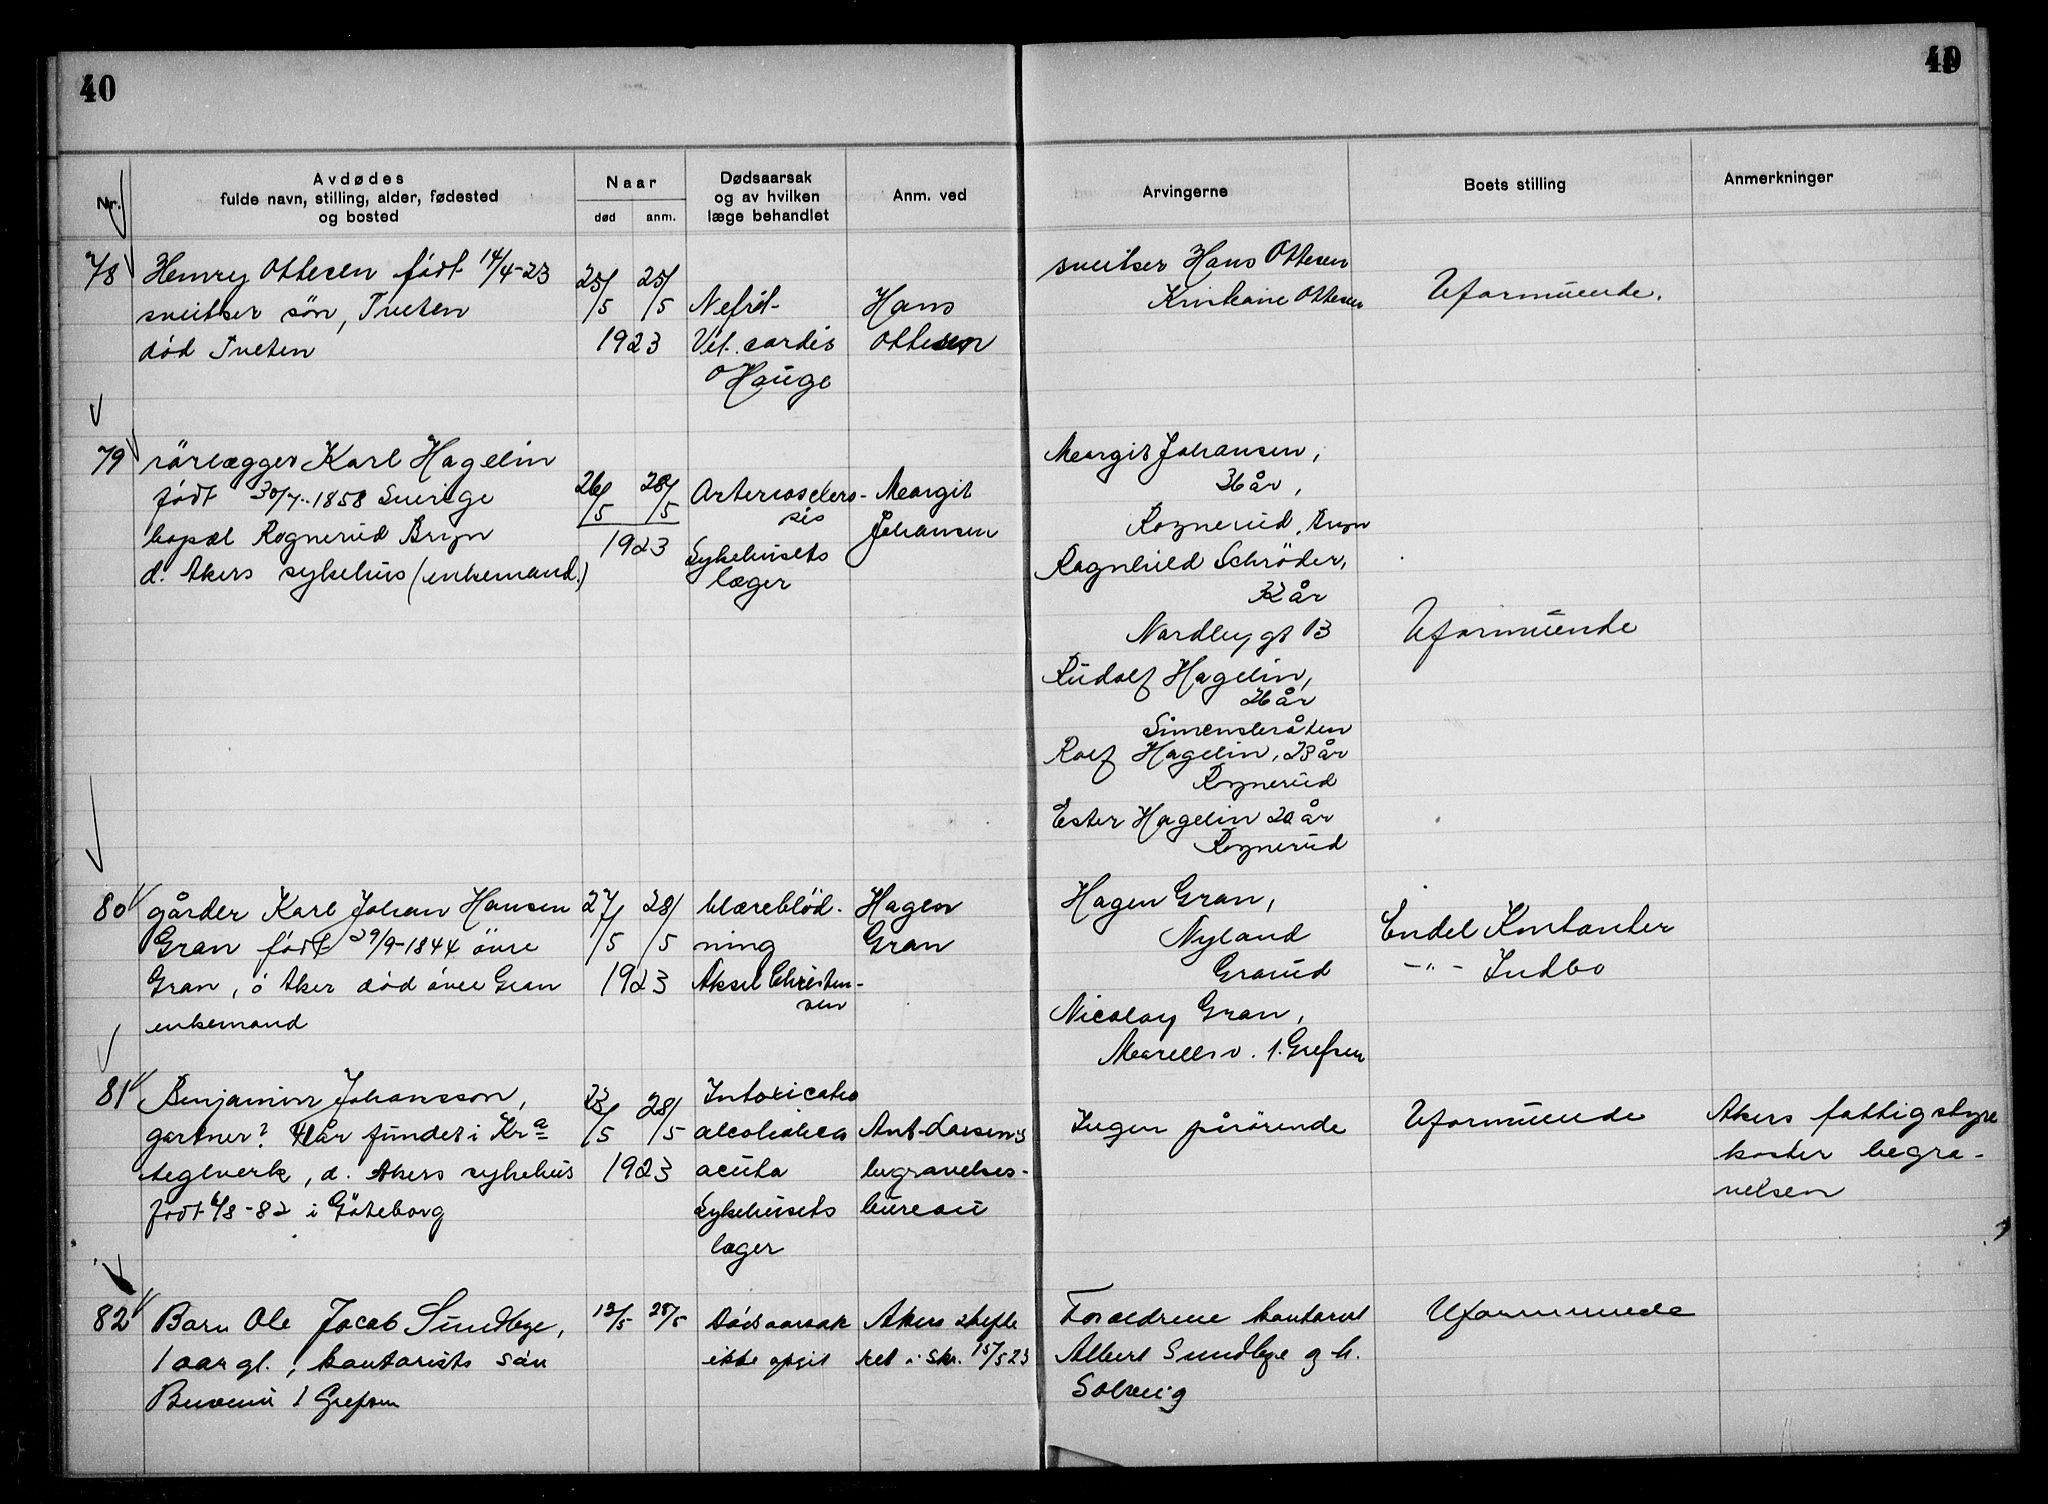 40
40
Nr.
Avdødes
fulde navn, stilling, alder, fødested
og bosted
Naar
død
anm.
Dødsaarsak
og av hvilken
læge behandlet
Anm. ved
Arvingerne
Boets stilling
Anmerkninger
78
Henry Ottesen født 14/4-23
sveitser søn, Tveten
død Tveten
25/5 25/5
1923
Nefrit-
Vit. cordis
O Hauge
Hans
Ottesen
sveitser Hans Ottesen
Ottesen
Uformuende.
79
rörlægger Karl Hagelin
født 30/7-1858 Sverige
bopæl Rognerud Bryn
d. Akers sykehus (enkemand.)
26/5 28/5
1923
Arterioscléro-
sis
Sykehusets
læger
Margit
Johansen
Margit Johansen,
36 år,
Rognerud, Bryn
Ragnhild Schröder,
32 år
Nordbygt 13
Rudolf Hagelin,
26 år
Simensbråten
Rolf Hagelin, 23 år
Rognerud
Ester Hagelin 20 år
Rognerud
Uformuende
80
gårder Karl Johan Hansen
Gran født 29/9-1844 övre
Gran, ö Aker död övre Gran
enkemand
27/5 28/5
1923
blæreblöd-
ning
Aksel Christen-
sen
Hagen
Gran
Hagen Gran,
Nyland
Grorud
Nicolay Gran,
1. Grefsen
Endel Kontanter
-"- Indbo
81
Benjamin Johansson,
gartner? 41 år fundet i Kra
teglverk, d. Akers sykehus
født 6/8-82 i Göteborg
23/5 28/5
1923
Intoxicatio
alcoholica
acuta
Sykehusets
læger
Ant. Larsens
begravelses-
bureau
Ingen pårörende
Uformuende
Akers fattigstyre
koster begra-
velsen
82
Barn Ole Jacob Sundbye,
1 aar gl., kontorists sön
1 Grefsen
12/5 28/5
Dödsaarsak
ikke opgit
Akers skifte
ret i skr. 15/5 23
Forældrene kontorist
Albert Sundbye og h.
Solveig
Uformuende